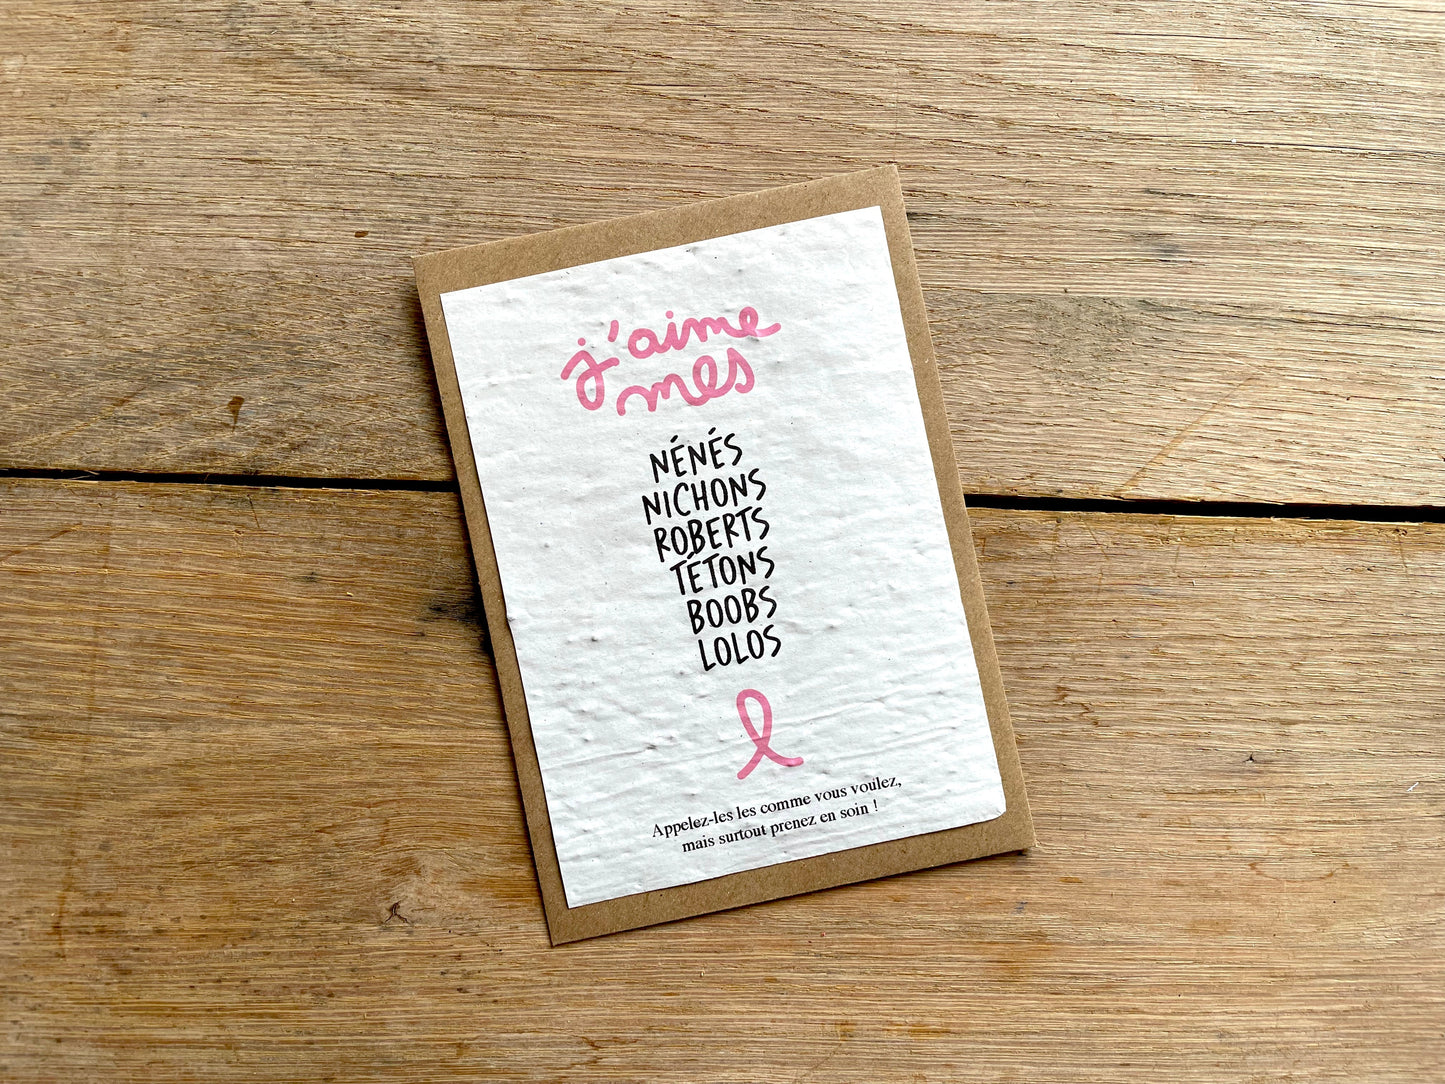 j'aime
mes
NÉNÉS
NICHONS
ROBERTS
TÉTONS
BOOBS
LOLOS
Appelez-les les comme vous voulez,
mais surtout prenez en soin !